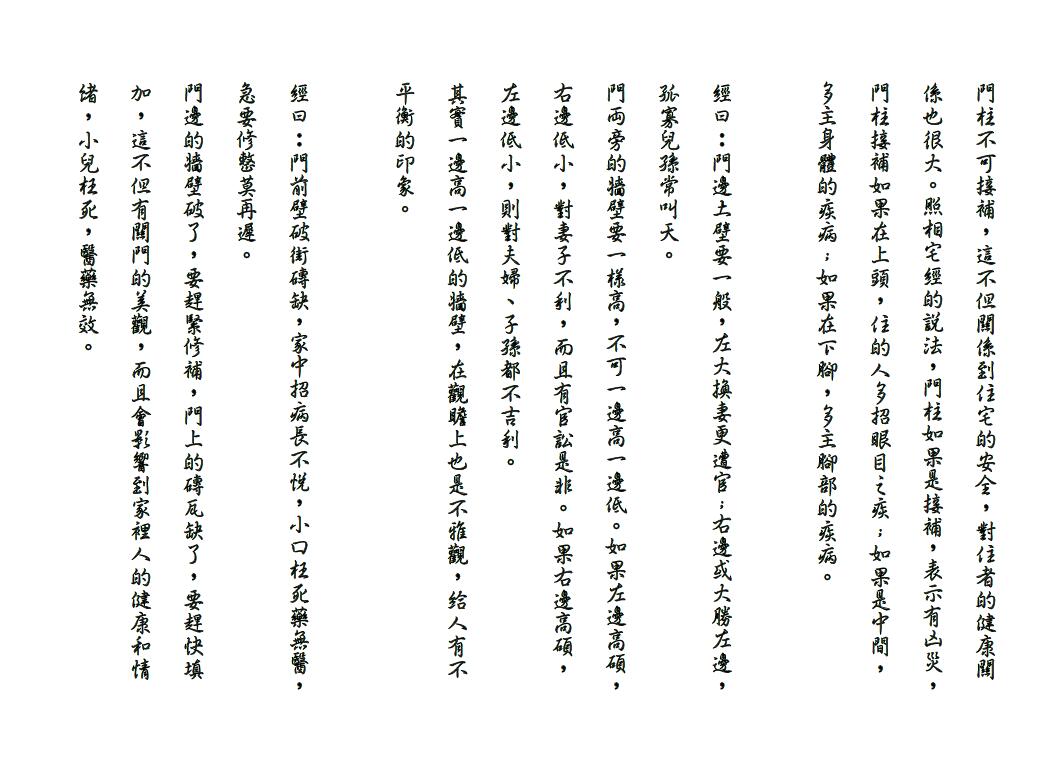 門柱不可接補，這不但關係到住宅的安全，對住者的健康關
係也很大。照相宅經的說法，門柱如果是接補，表示有凶災，
門柱接補如果在上頭，住的人多招眼目之疾；如果是中間，
多主身體的疾病；如果在下腳，多主腳部的疾病。
經曰：門邊土壁要一般，左大換妻更遭官；右邊或大勝左邊，
孤寡兒孫常叫天。
門兩旁的牆壁要一樣高，不可一邊高一邊低。如果左邊高碩，
右邊低小，對妻子不利，而且有官訟是非。如果右邊高碩，
左邊低小，則對夫婦、子孫都不吉利。
其實一邊高一邊低的牆壁，在觀瞻上也是不雅觀，給人有不
平衡的印象。
經曰：門前壁破街磚缺，家中招病長不悅，小口枉死藥無醫，
急要修整莫再遲。
門邊的牆壁破了，要趕緊修補，門上的磚瓦缺了，要趕快填
加，這不但有關門的美觀，而且會影響到家裡人的健康和情
緒，小兒枉死，醫藥無效。